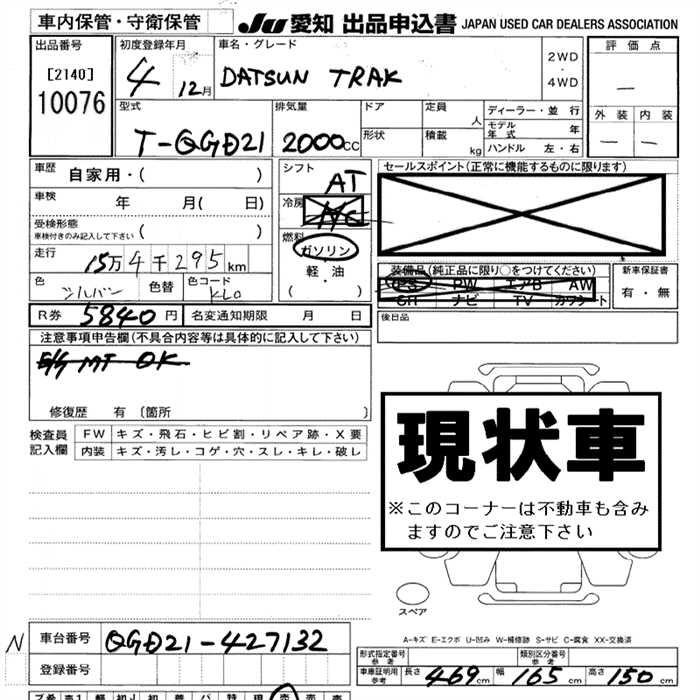 車内保管・守衛保管
JU 愛知 出品申込書 JAPAN USED CAR DEALERS ASSOCIATION
出品番号
[2140]
10076
初度登録年月
4 12月
車名・グレード
DATSUN TRAK
2WD
・
4WD
評価点
—
外装 内装
— —
型式
T-QGD21
排気量
2000cc
ドア
形状
定員 人
積載 kg
ディーラー・並行
モデル年式 年
ハンドル 左・右
車歴 自家用・( )
車検 年 月( 日)
受検形態
車検付きのみ記入して下さい ( )
走行 15万4千295km
色 シルバー 色替 色コード KL0
シフト AT
冷房 AC
燃料
ガソリン
・
軽・油
( )
セールスポイント(正常に機能するものに限ります)
装備品(純正品に限り○をつけてください)
PS PW エアB AW
SH ナビ TV カワシート
新車保証書
有・無
R券 5840円 名変通知期限 月 日
後日品
注意事項申告欄(不具合内容等は具体的に記入して下さい)
E/G MT OK
修復歴 有 〔箇所 〕
検査員記入欄
FW キズ・飛石・ヒビ割・リペア跡・X要
内装 キズ・汚レ・コゲ・穴・スレ・キレ・破レ
現状車
※このコーナーは不動車も含み
ますのでご注意下さい
スペア
A-キズ E-エクボ U-凹み W-補修跡 S-サビ C-腐食 XX-交換済
N 車台番号 QGD21-427132
登録番号
形式指定番号 参考
類別区分番号 参考
車庫証明用 参考 長さ 469cm 幅 165cm 高さ 150cm